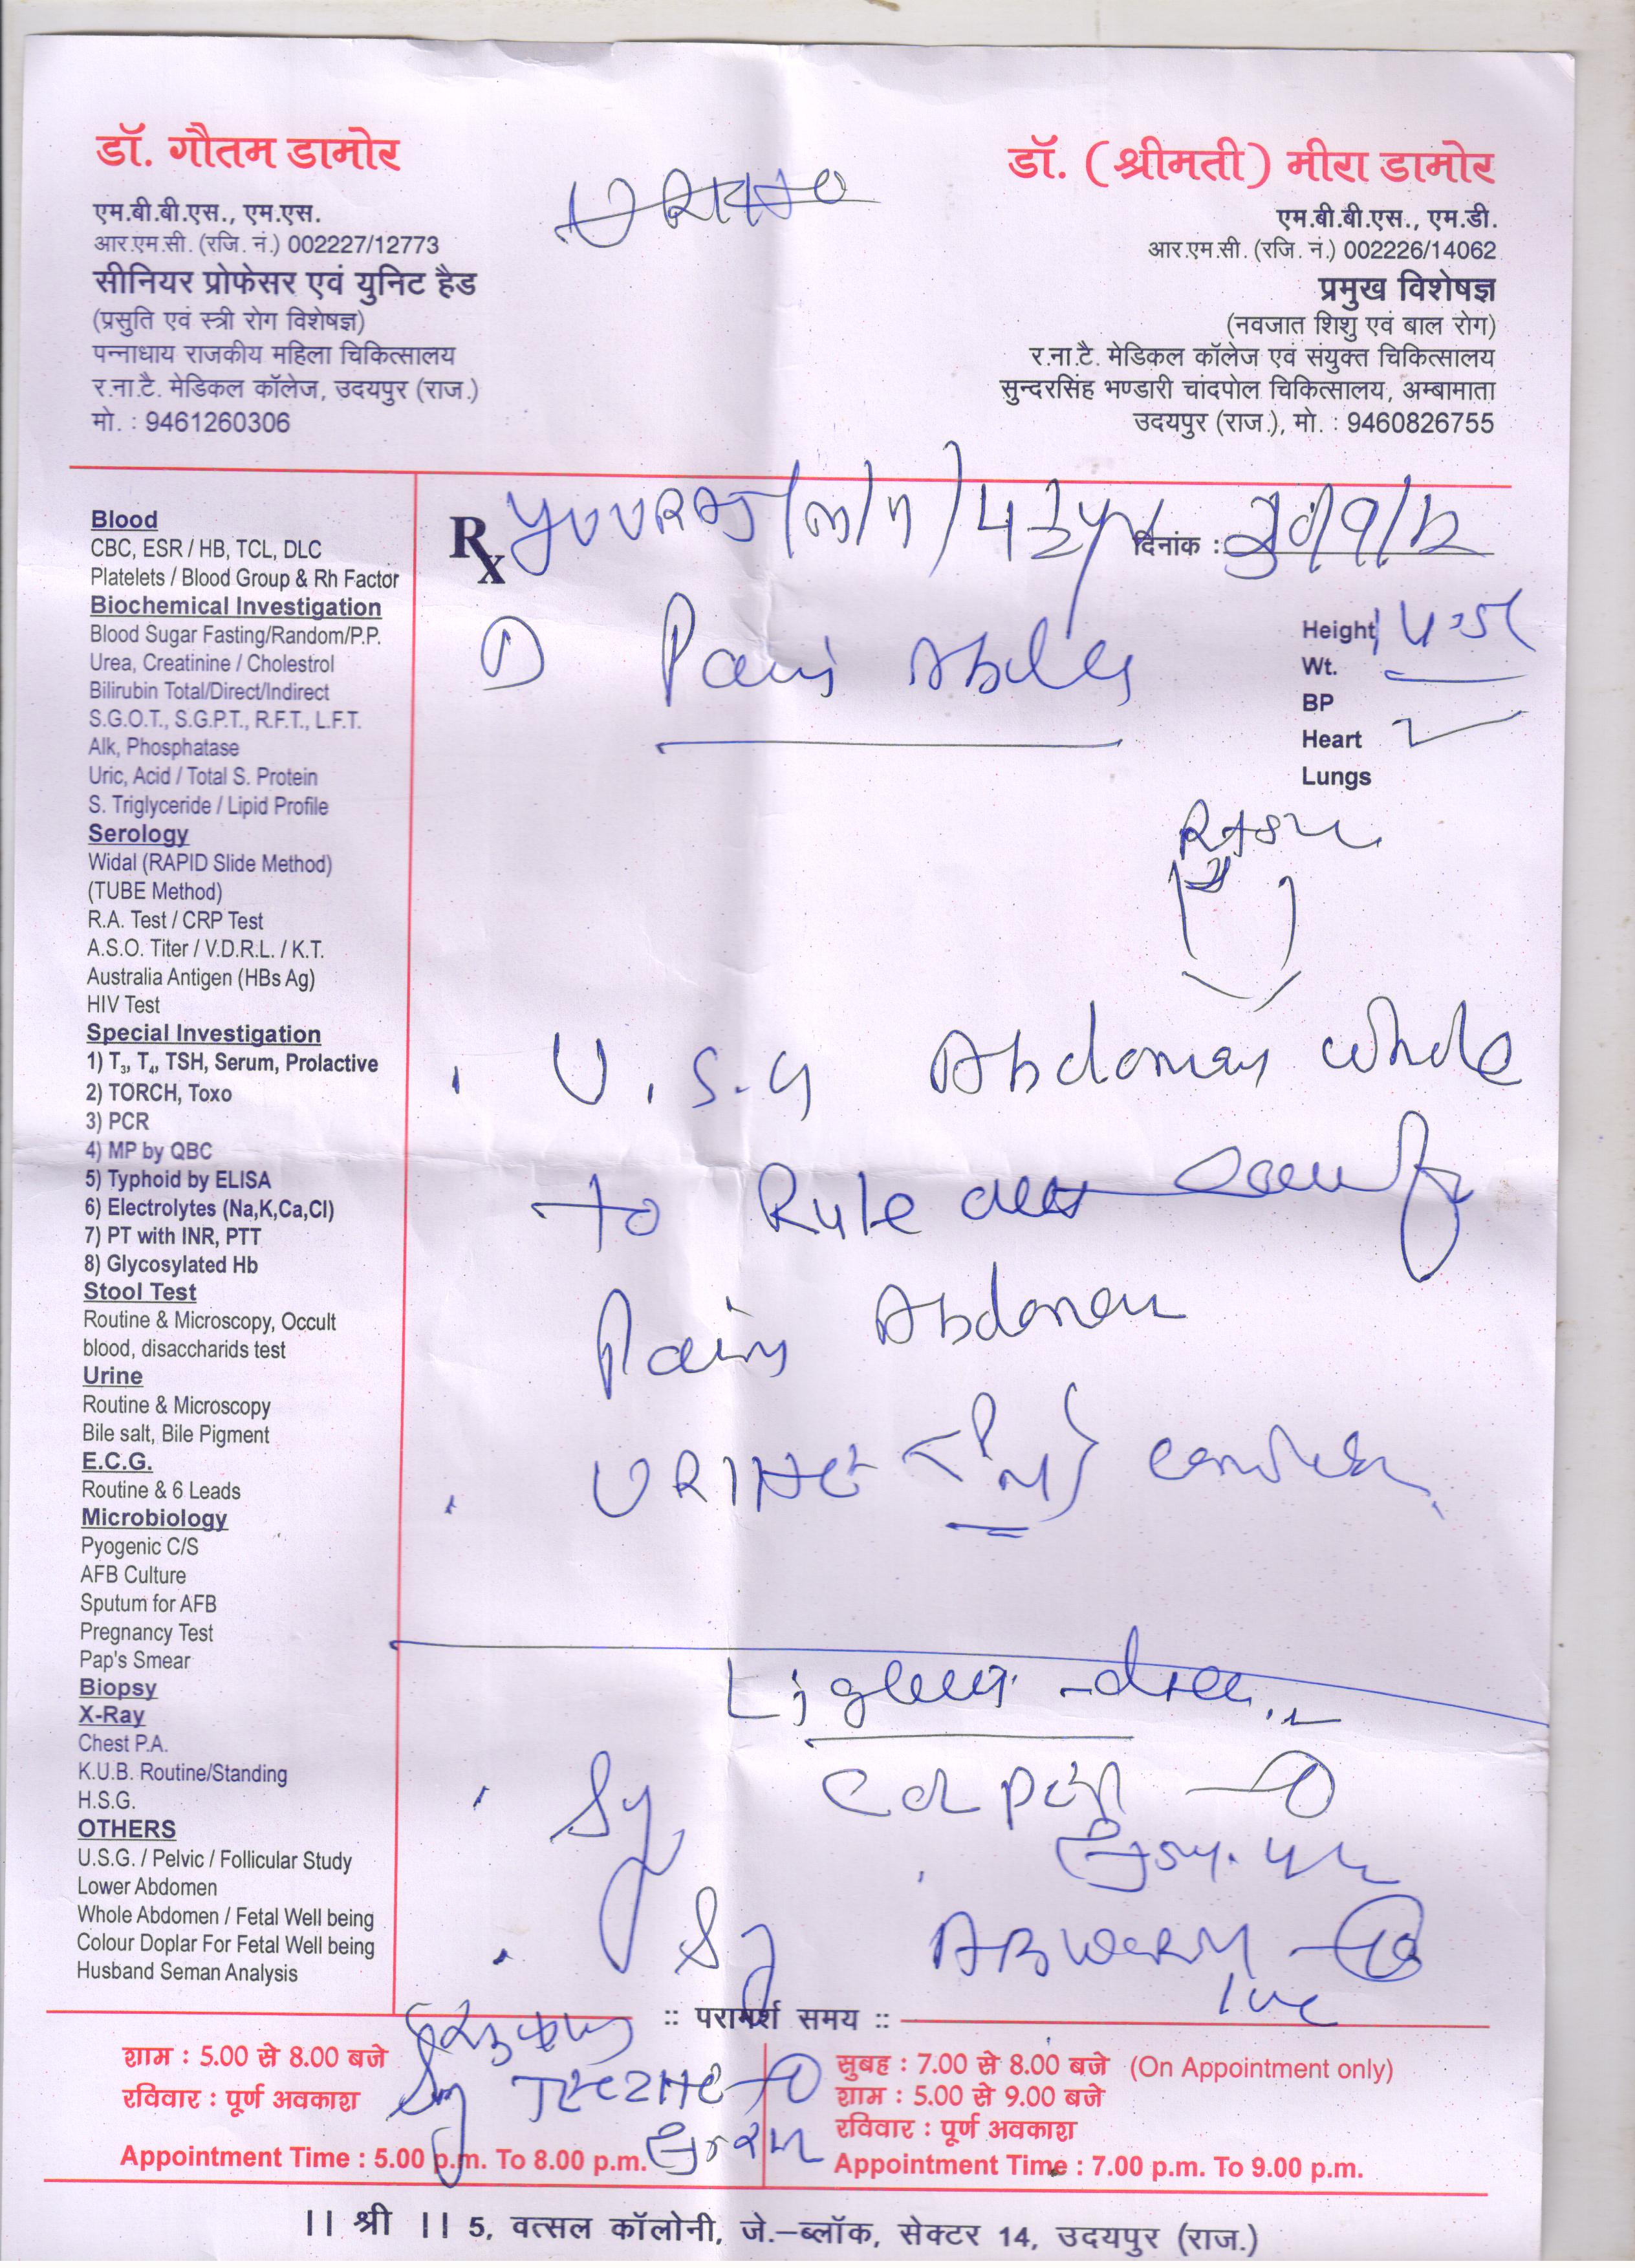 डॉ. गौतम डामोर
एम.बी.बी.एस., एम.एस.
आर.एम.सी. (रजि. नं.) 002227/12773
सीनियर प्रोफेसर एवं युनिट हैड
(प्रसुति एवं स्त्री रोग विशेषज्ञ)
पन्नाधाय राजकीय महिला चिकित्सालय
र.ना.टै. मेडिकल कॉलेज, उदयपुर (राज.)
मो. : 9461260306
डॉ. (श्रीमती) मीरा डामोर
एम.बी.बी.एस., एम.डी.
आर.एम.सी. (रजि. नं.) 002226/14062
प्रमुख विशेषज्ञ
(नवजात शिशु एवं बाल रोग)
र.ना.टै. मेडिकल कॉलेज एवं संयुक्त चिकित्सालय
सुन्दरसिंह भण्डारी चांदपोल चिकित्सालय, अम्बामाता
उदयपुर (राज.), मो. : 9460826755
Blood
CBC, ESR / HB, TCL, DLC
Platelets / Blood Group & Rh Factor
Biochemical Investigation
Blood Sugar Fasting/Random/P.P.
Urea, Creatinine / Cholestrol
Bilirubin Total/Direct/Indirect
S.G.O.T., S.G.P.T., R.F.T., L.F.T.
Alk, Phosphatase
Uric, Acid / Total S. Protein
S. Triglyceride / Lipid Profile
Serology
Widal (RAPID Slide Method)
(TUBE Method)
R.A. Test / CRP Test
A.S.O. Titer / V.D.R.L. / K.T.
Australia Antigen (HBs Ag)
HIV Test
Special Investigation
1) T3, T4, TSH, Serum, Prolactive
2) TORCH, Toxo
3) PCR
4) MP by QBC
5) Typhoid by ELISA
6) Electrolytes (Na,K,Ca,Cl)
7) PT with INR, PTT
8) Glycosylated Hb
Stool Test
Routine & Microscopy, Occult
blood, disaccharids test
Urine
Routine & Microscopy
Bile salt, Bile Pigment
E.C.G.
Routine & 6 Leads
Microbiology
Pyogenic C/S
AFB Culture
Sputum for AFB
Pregnancy Test
Pap's Smear
Biopsy
X-Ray
Chest P.A.
K.U.B. Routine/Standing
H.S.G.
OTHERS
U.S.G. / Pelvic / Follicular Study
Lower Abdomen
Whole Abdomen / Fetal Well being
Colour Doplar For Fetal Well being
Husband Seman Analysis
Rx YUVRAJ दिनांक :
Height
Wt.
BP
Heart
Lungs
Pain
U.S.G Abdomen whole
to Rule out
Pain Abdomen
URINE
Sy
Sy
:: परामर्श समय ::
शाम : 5.00 से 8.00 बजे
रविवार : पूर्ण अवकाश
Appointment Time : 5.00 p.m. To 8.00 p.m.
सुबह : 7.00 से 8.00 बजे (On Appointment only)
शाम : 5.00 से 9.00 बजे
रविवार : पूर्ण अवकाश
Appointment Time : 7.00 p.m. To 9.00 p.m.
|| श्री || 5, वत्सल कॉलोनी, जे.-ब्लॉक, सेक्टर 14, उदयपुर (राज.)